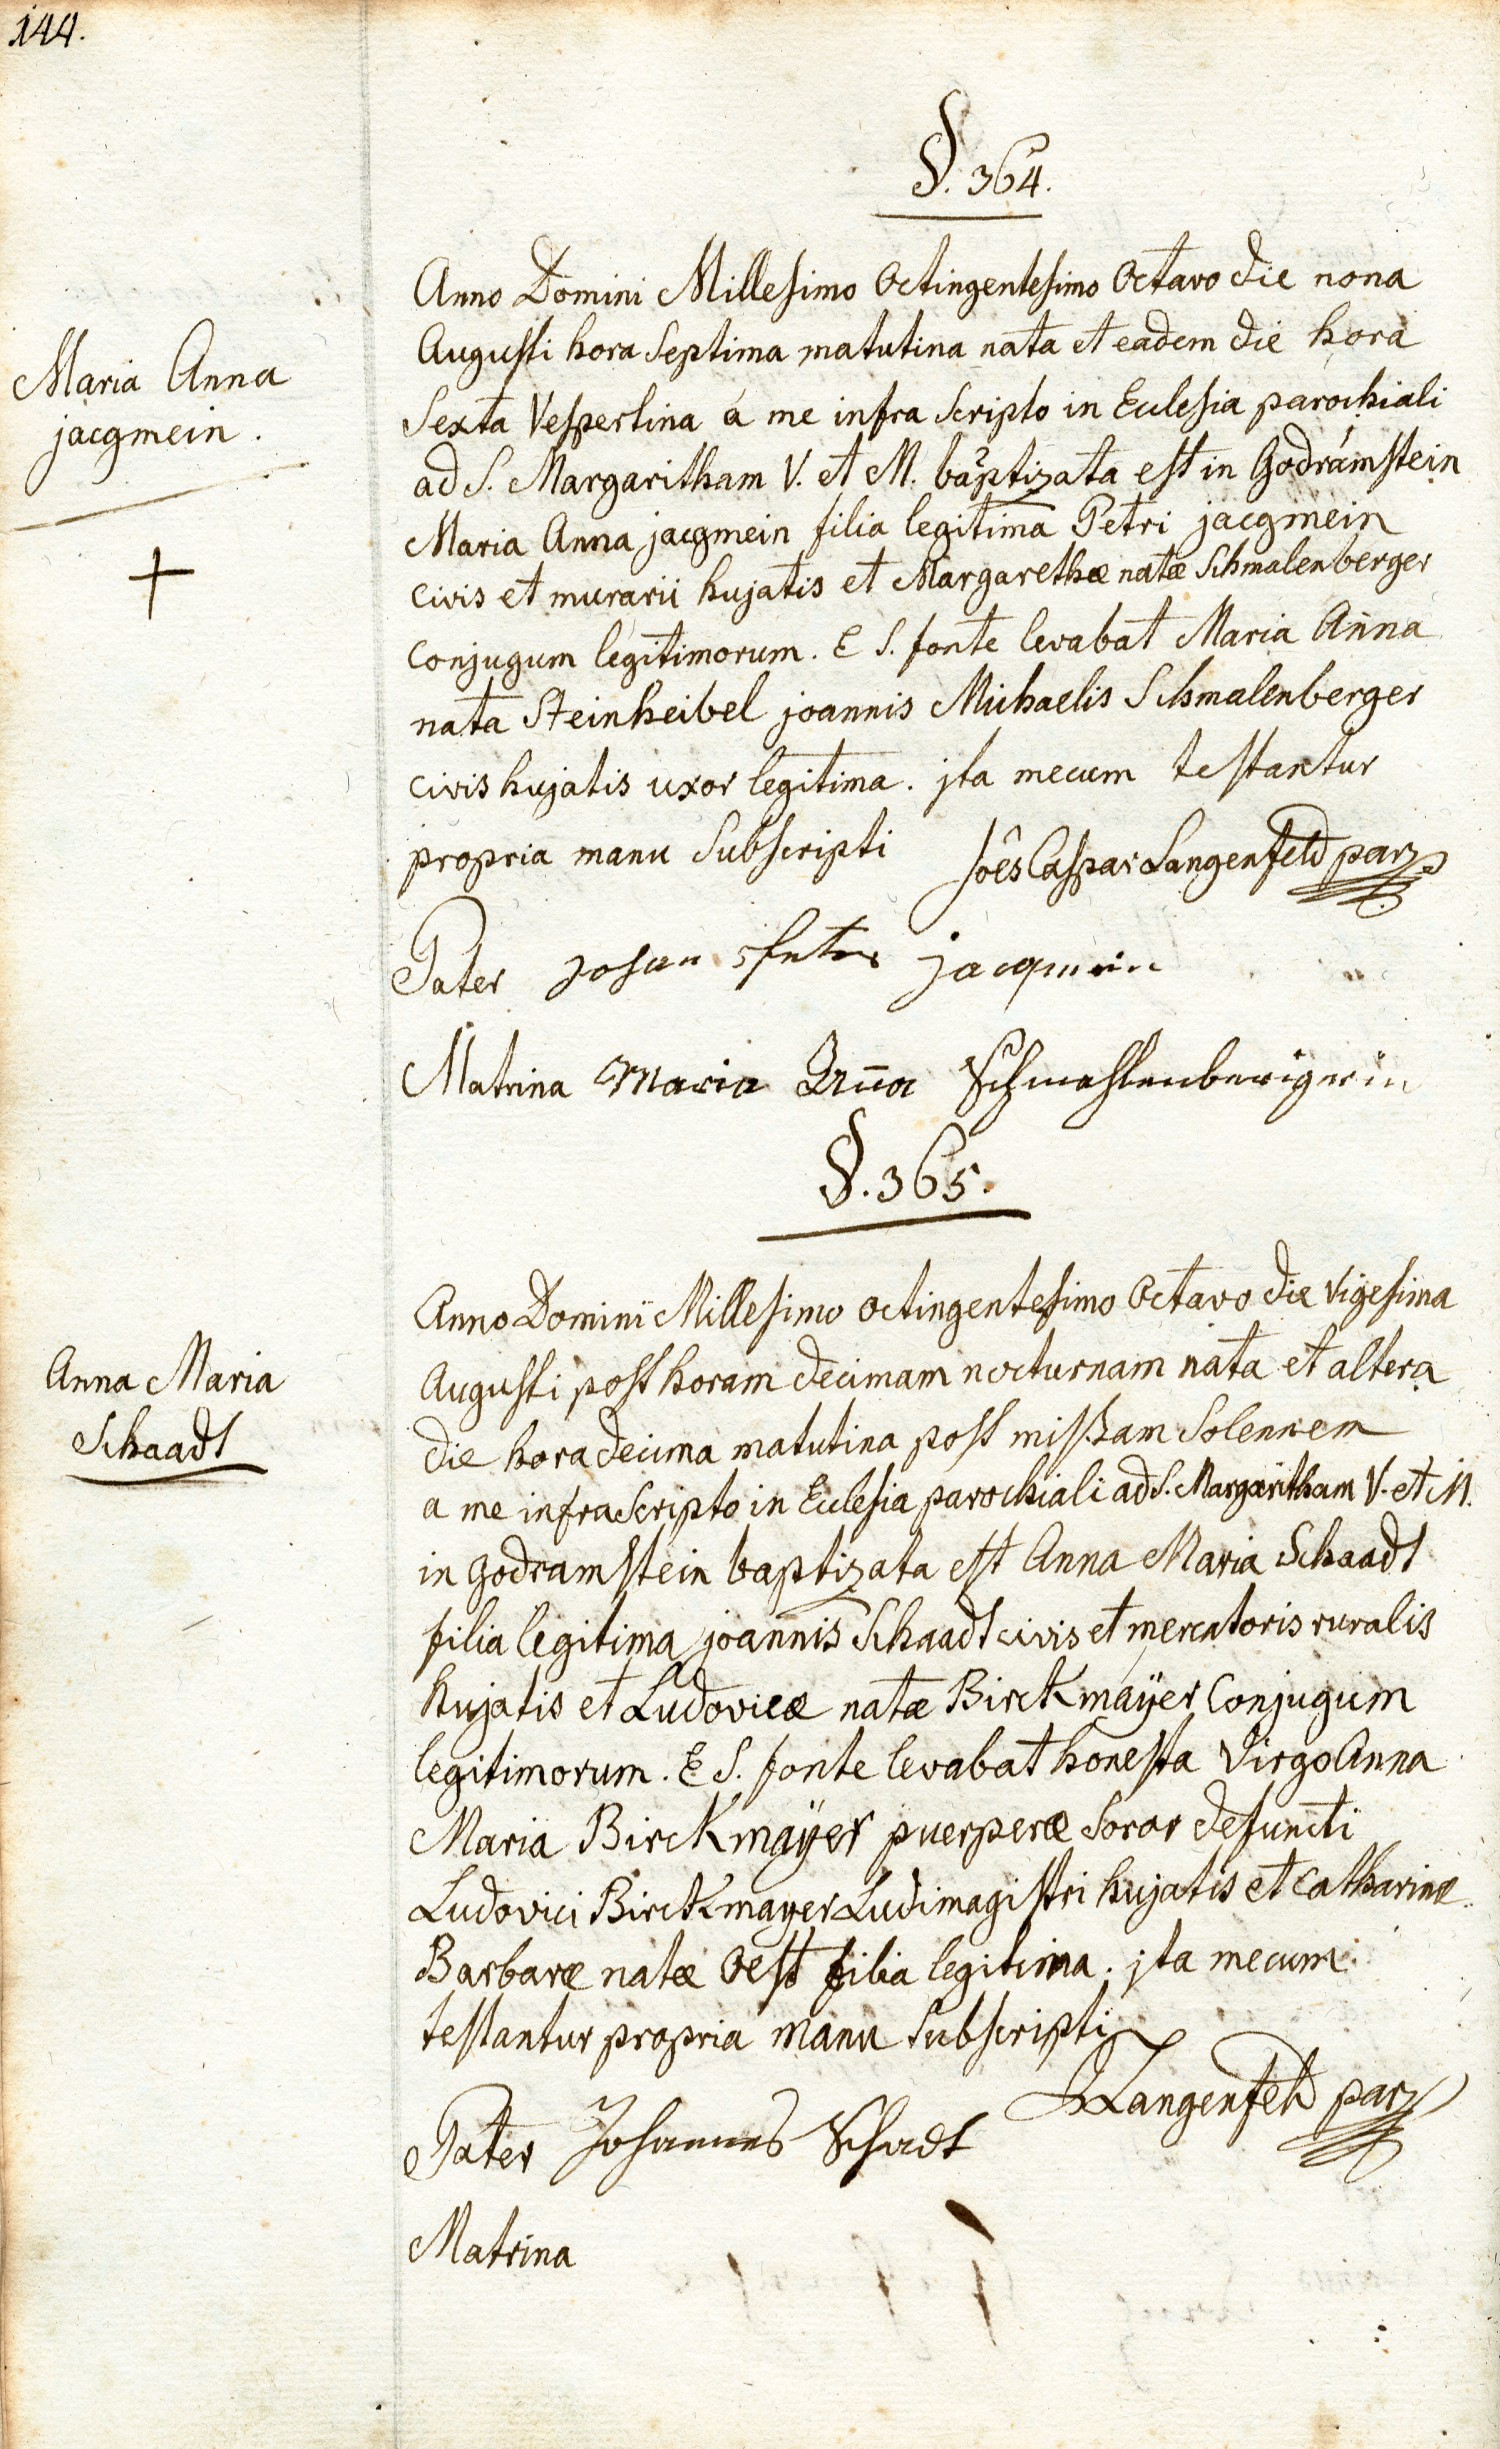 144.
§. 364.
Maria Anna
jacgmein.
Anno Domini Millesimo Octingentesimo Octavo die nona
Augusti hora Septima matutina nata et eadem die hora
Sexta Vespertina á me infra Scripto in Eclesia parochiali
ad S. Margaritham V. et M. baptizata est in Godrámstein
Maria Anna jacgmein filia legitima Petri jacgmein
civis et murarii hujatis et Margarethæ natæ Schmalenberger
Conjugum legitimorum. E S. fonte levabat Maria Anna
nata Steinheibel joannis Michaelis Schmalenberger
civis hujatis uxor legitima. jta mecum testantur
propria manu Subscripti Joês Caspar Langenfeld par
Pater Johan jacqmein
Matrina Maria Anna Schmahlenbergerin
§. 365.
Anna Maria
Schaadt
Anno Domini Millesimo octingentesimo Octavo die Vigesima
Augusti post horam decimam nocturnam nata et altera
die hora decima matutina post missam Solennem
a me infraScripto in Eclesia parochiali ad S. Margaritham V. et M.
in godramstein baptizata est Anna Maria Schaadt
filia legitima joannis Schaadt civis et mercatoris ruralis
hujatis et Ludovicæ natæ Birckmaÿer Conjugum
legitimorum. E S. fonte levabat honesta Virgo Anna
Maria Birckmaÿer puerperæ Soror defuncti
Ludovici Birckmayer Ludimagistri hujatis et catharinæ
Barbaræ natæ Oest filia legitima. jta mecum
testantur propria manu Subscripti
Langenfeld par
Pater Johannes Schadt
Matrina